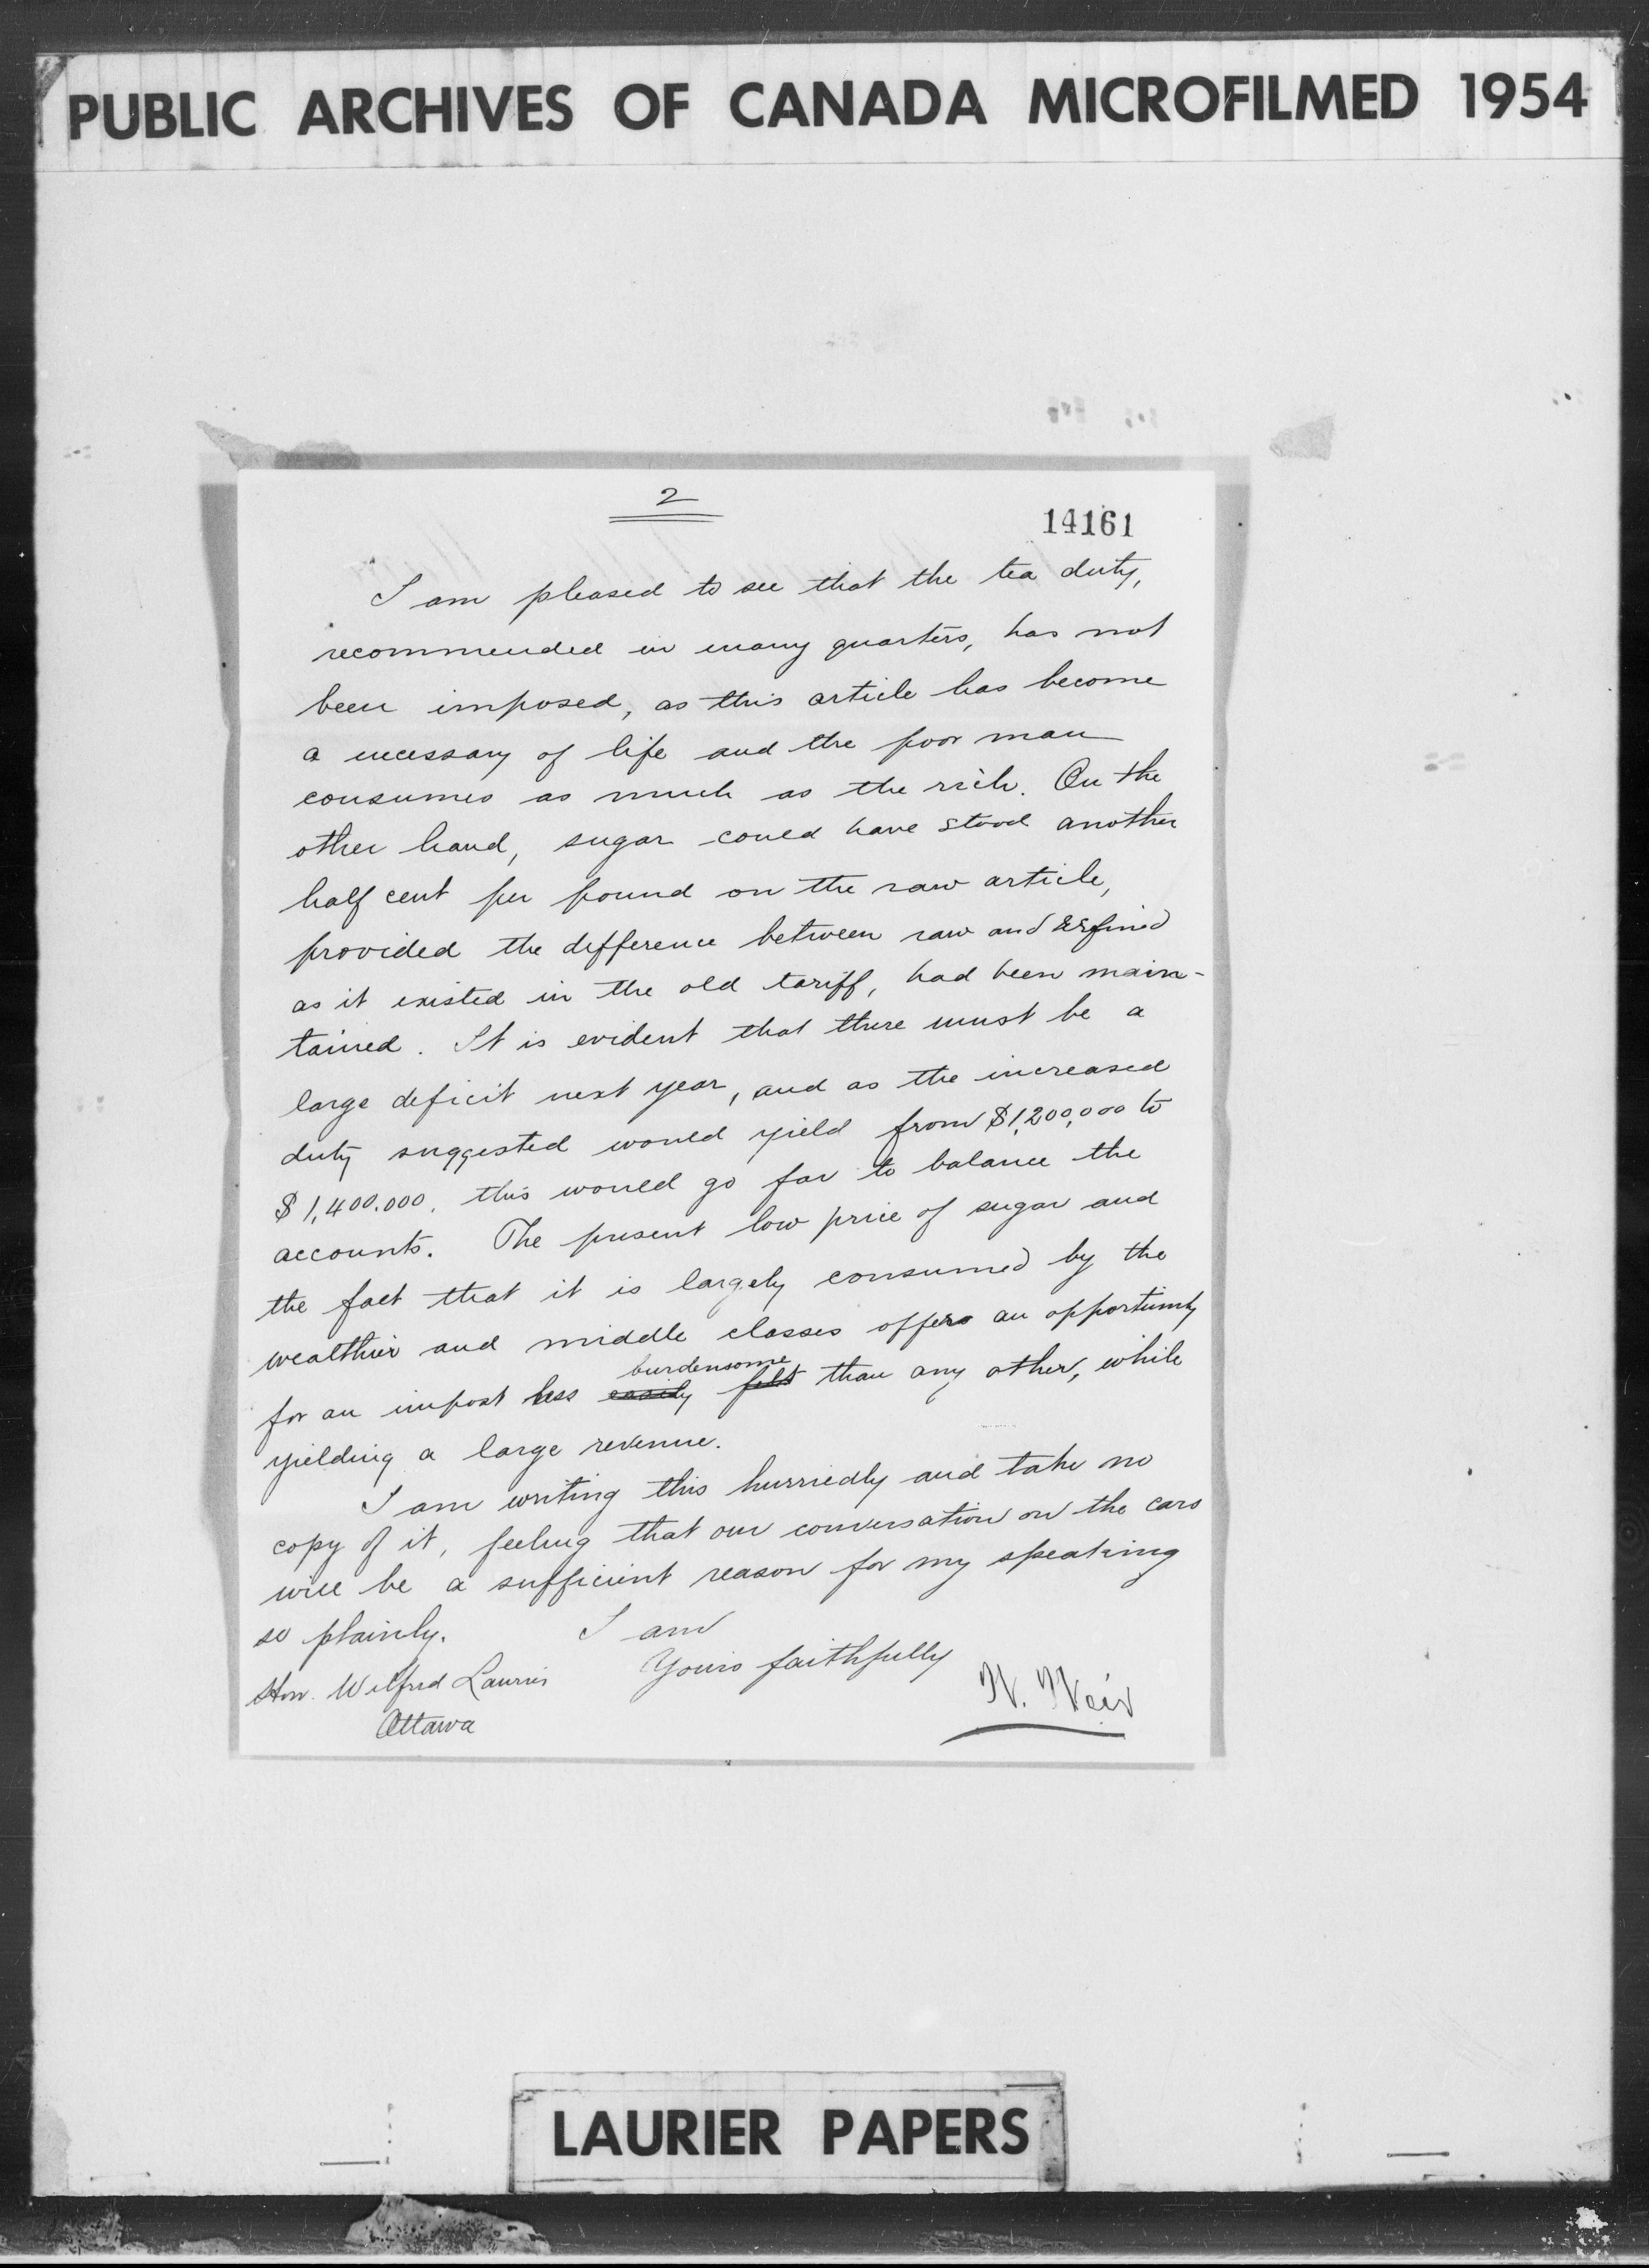 PUBLIC ARCHIVES OF CANADA MICROFILMED 1954
2
14161
I am pleased to see that the tea duty,
recommended in many quarters, has not
been imposed, as this article has become
a necessary of life and the poor man
consumes as much as the rich. On the
other hand, sugar could have stood another
half cent per pound on the raw article,
provided the difference between raw and refined
as it existed in the old tariff, had been main-
tained. It is evident that there must be a
large deficit next year, and as the increased
duty suggested would yield from $1,200,000 to
$1,400.000, this would go far to balance the
accounts. The present low price of sugar and
the fact that it is largely consumed by the
wealthier and middle classes offers an opportunity
burdensome
for an impost less easily felt than any other, while
yielding a large revenue.
I am writing this hurriedly and take no
copy of it, feeling that our conversation on the cars
will be a sufficient reason for my speaking
so plainly. I am
Yours faithfully
Hon. Wilfred Laurier
W. Weir
Ottawa
LAURIER PAPERS